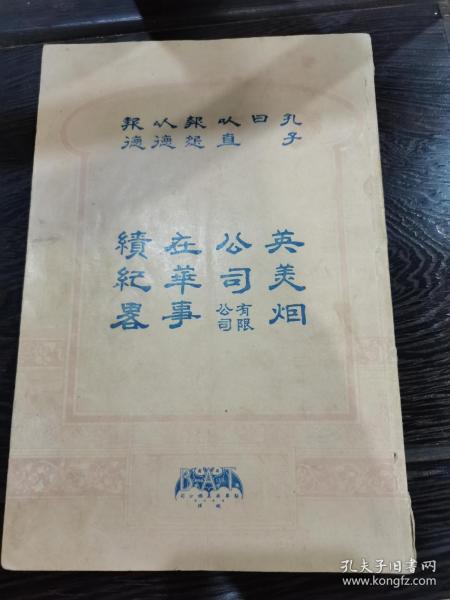 孔子
曰
以直
報怨
以德
報德
英美烟
公司有限公司
在華事
績紀畧
B.A.T.
孔夫子旧书网
www.kongfz.com